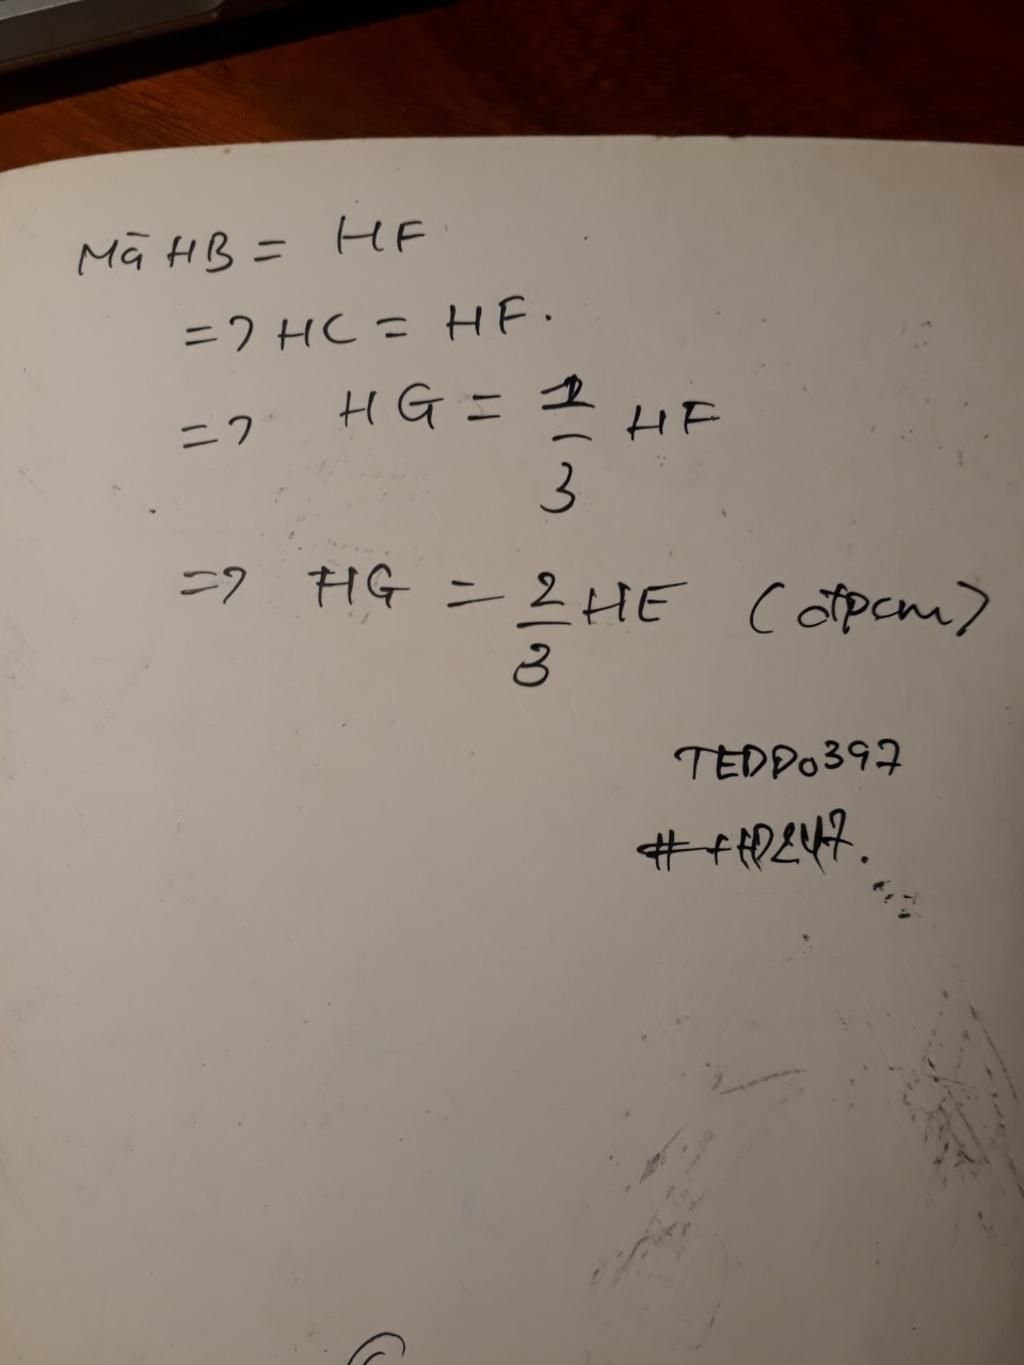 Mà HB = HF
=> HC = HF.
=> HG = 1/3 HF
=> HG = 2/3 HE (đpcm)
TEDDo397